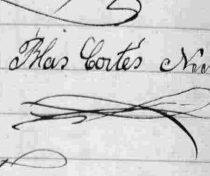 Blas Cortés